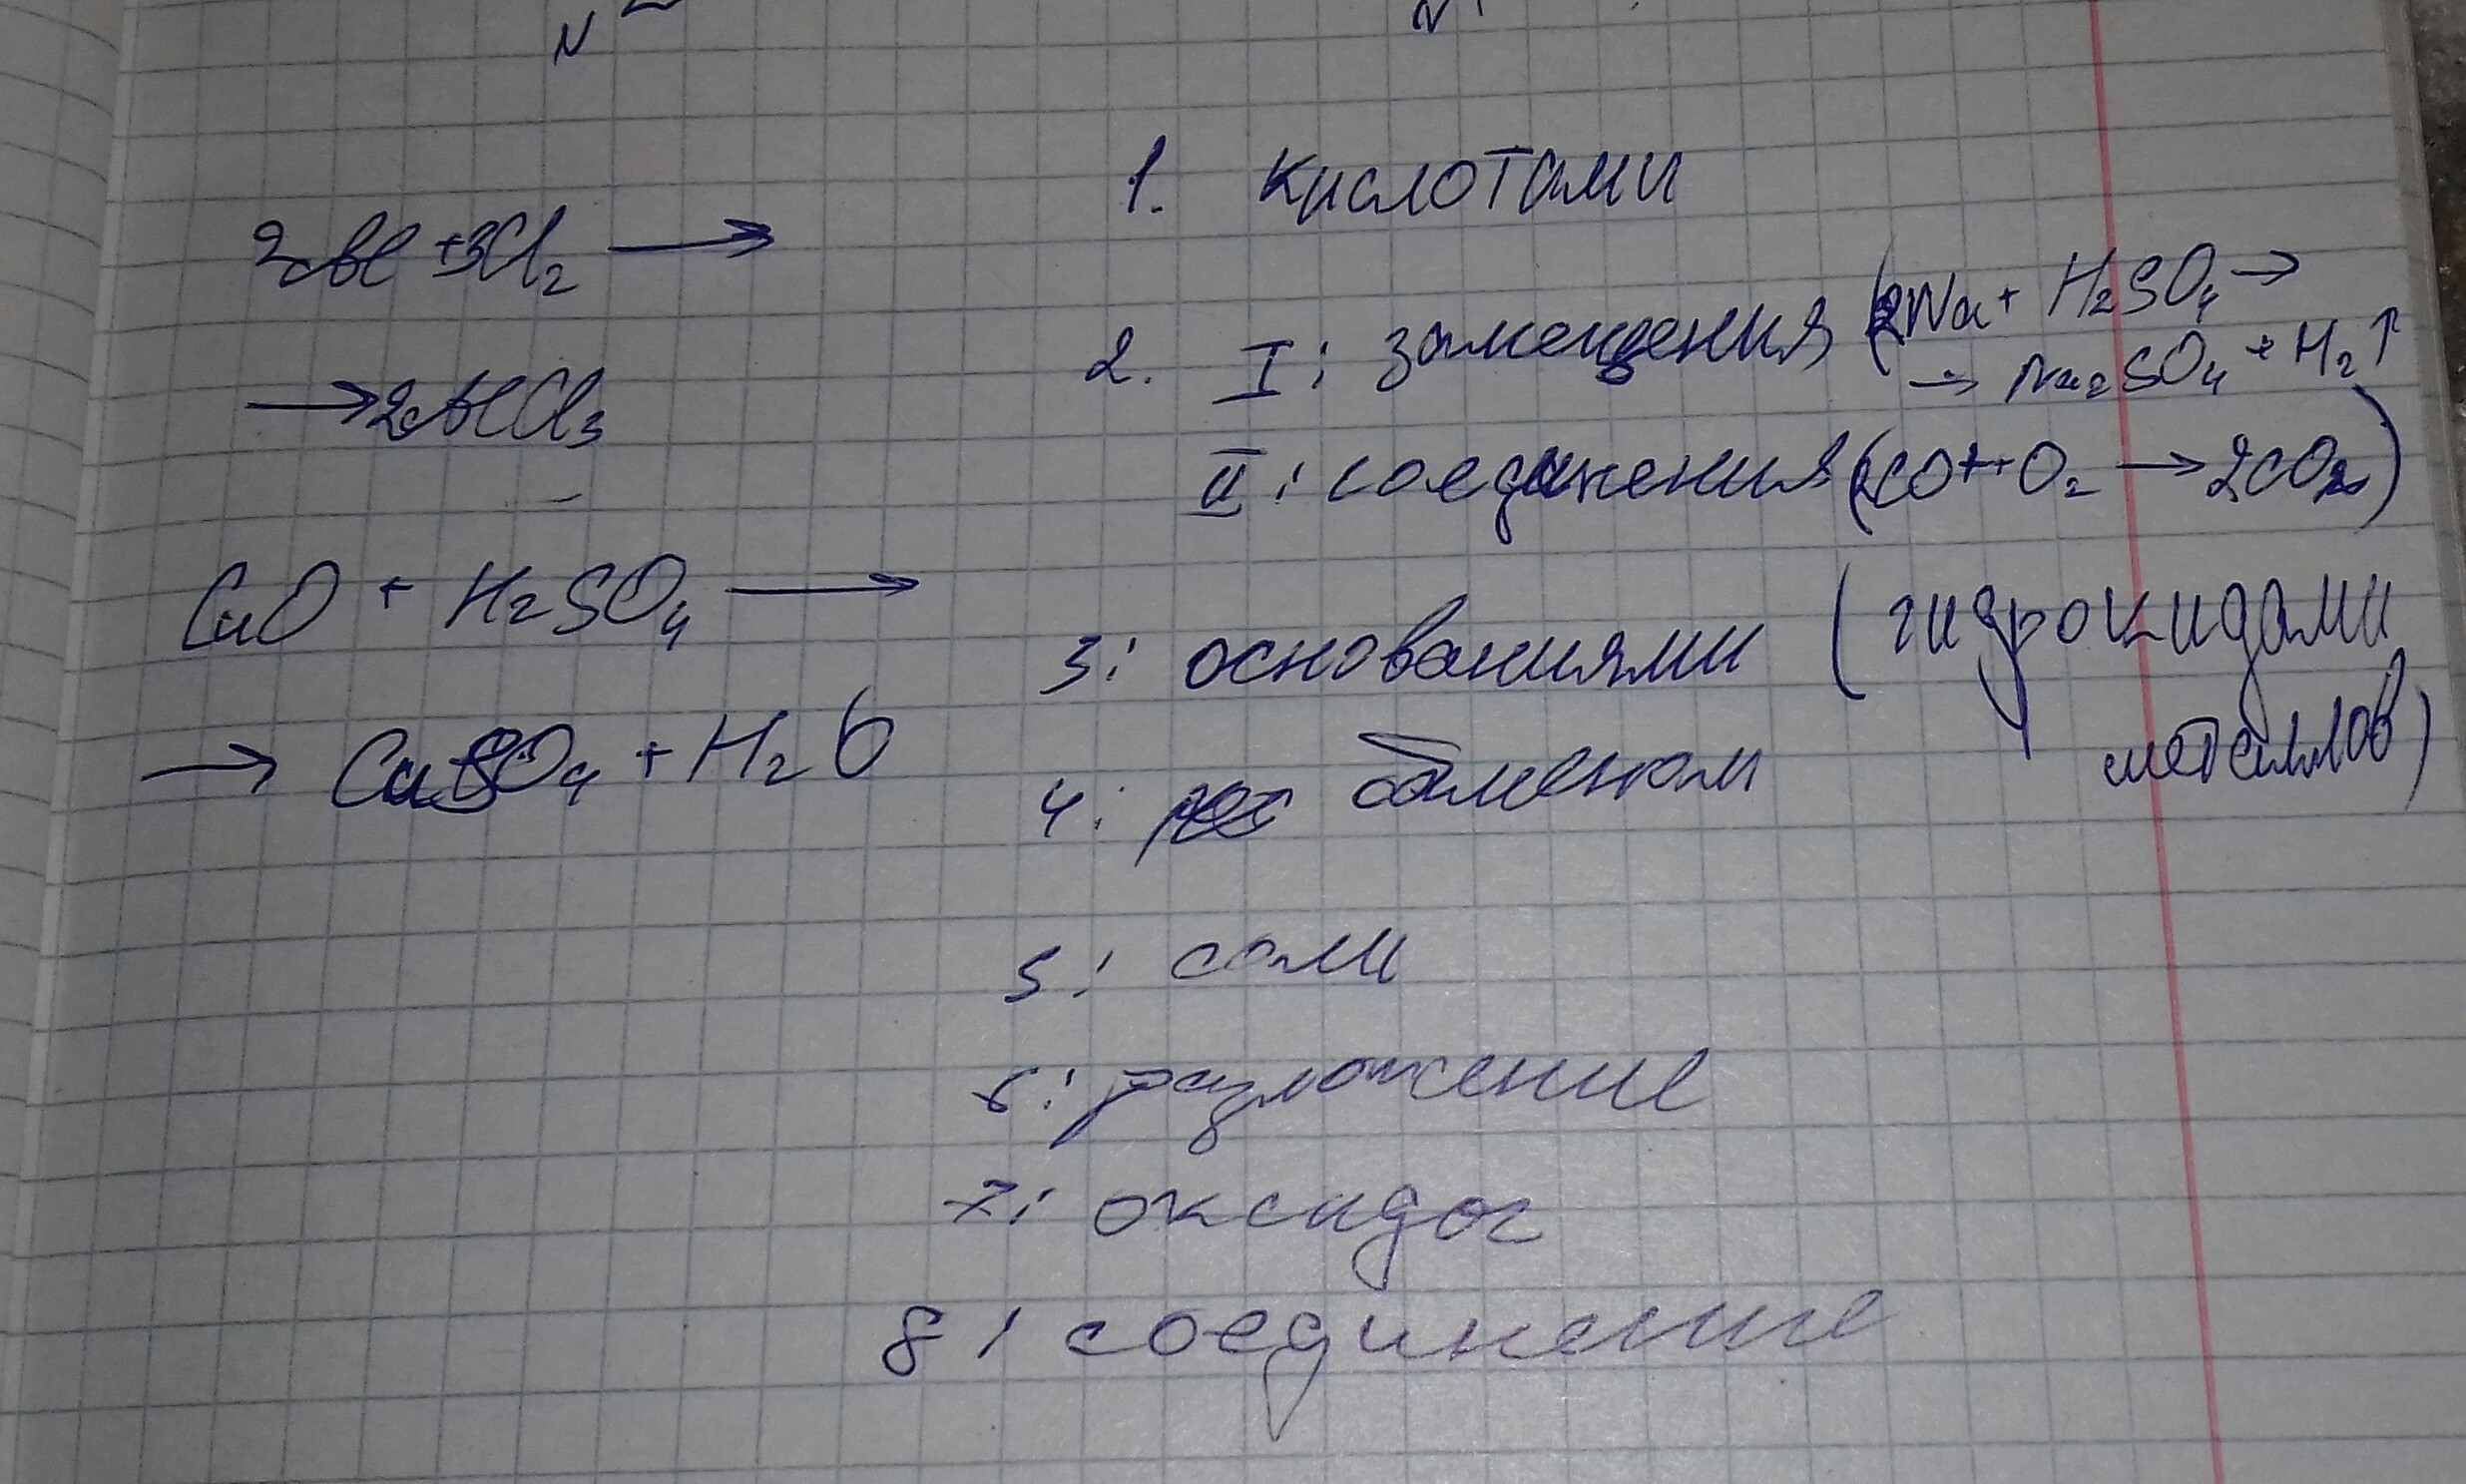 2Al + 3Cl₂ ⟶
⟶ 2AlCl₃
CuO + H₂SO₄ ⟶
→ CuSO₄ + H₂O
1. кислотами
2. I: замещения (2Na + H₂SO₄ →
→ Na₂SO₄ + H₂↑
II: соединения (2CO + O₂ → 2CO₂)
3: основаниями (гидрокидами
металлов)
4: обменом
5: соли
6: разложение
7: оксидос
8: соединение